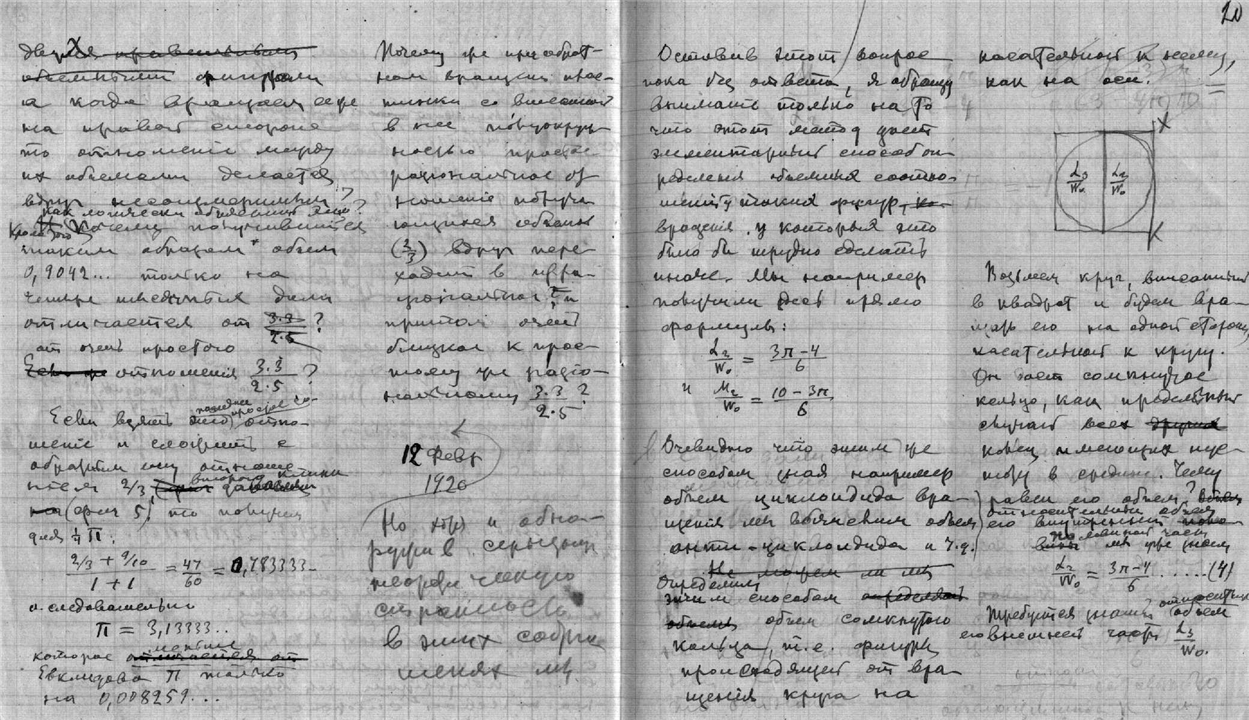 двумя
фигурами
а когда вращаем его же
на правой стороне
то отношение между
их объемами делается
вдруг несоизмеримым?
как логически объяснить это?
Кроме того почему получившийся
таким образом объем
0,9042... только на
четыре тысячных доли
отличается от 3.3/2.5?
от очень простого
отношения 3.3/2.5?
Если взять это отно-
шение и сложить с
обратным ему отноше-
нием 2/3
(фиг 5), то получим
для 1/4 π:
(2/3 + 9/10)/(1 + 1) = 47/60 = 0,783333-
а следовательно
π = 3,13333..
которое меньше
Евклидова π только
на 0,008259...
Почему же при обрат-
ном вращении
с вписанной
в нее полуокруж-
ностью простое
рациональное от-
ношение получа-
ющихся объемов
(2/3) вдруг пере-
ходит в ирра-
циональное
притом очень
близкое к прос-
тому же рацио-
нальному 3.3/2.5?
12 Февр
1920
Но хотя и обна-
ружив серьезную
теоретическую
странность
в этих соотно-
шениях мы
20
Оставив этот вопрос
пока без ответа, я обращу
внимание только на то
что этот метод дает
элементарный способ оп-
ределения объемных соотно-
шений у таких фигур,
вращения, у которых это
было бы трудно сделать
иначе. Мы например
получили здесь прямо
формулы:
L₂/W₀ = (3π-4)/6
и M₂/W₀ = (10-3π)/6
Очевидно что этим же
способом зная например
объем циклоидида вра-
щения мы вычислим объем
анти-циклоидида и т.д.
Не можем ли мы
Определим
этим способом определить
объем сомкнутого
кольца, т.е. фигуры
происходящей от вра-
щения круга на
касательной к нему,
как на оси.
X
L₃/W₀ L₂/W₀
X
Возьмем круг, вписанный
в квадрат и будем вра-
щать его на одной стороне,
касательной к кругу.
Он дает сомкнутое
кольцо, как предельный
случай всех
колец имеющих пус-
тоту в средине. Чему
равен его объем?
относительный объем
его внутренней
половинной части
мы уже знаем
L₂/W₀ = (3π-4)/6 .....(4)
Требуется знать относит.
объем
его внешней части L₃/W₀.